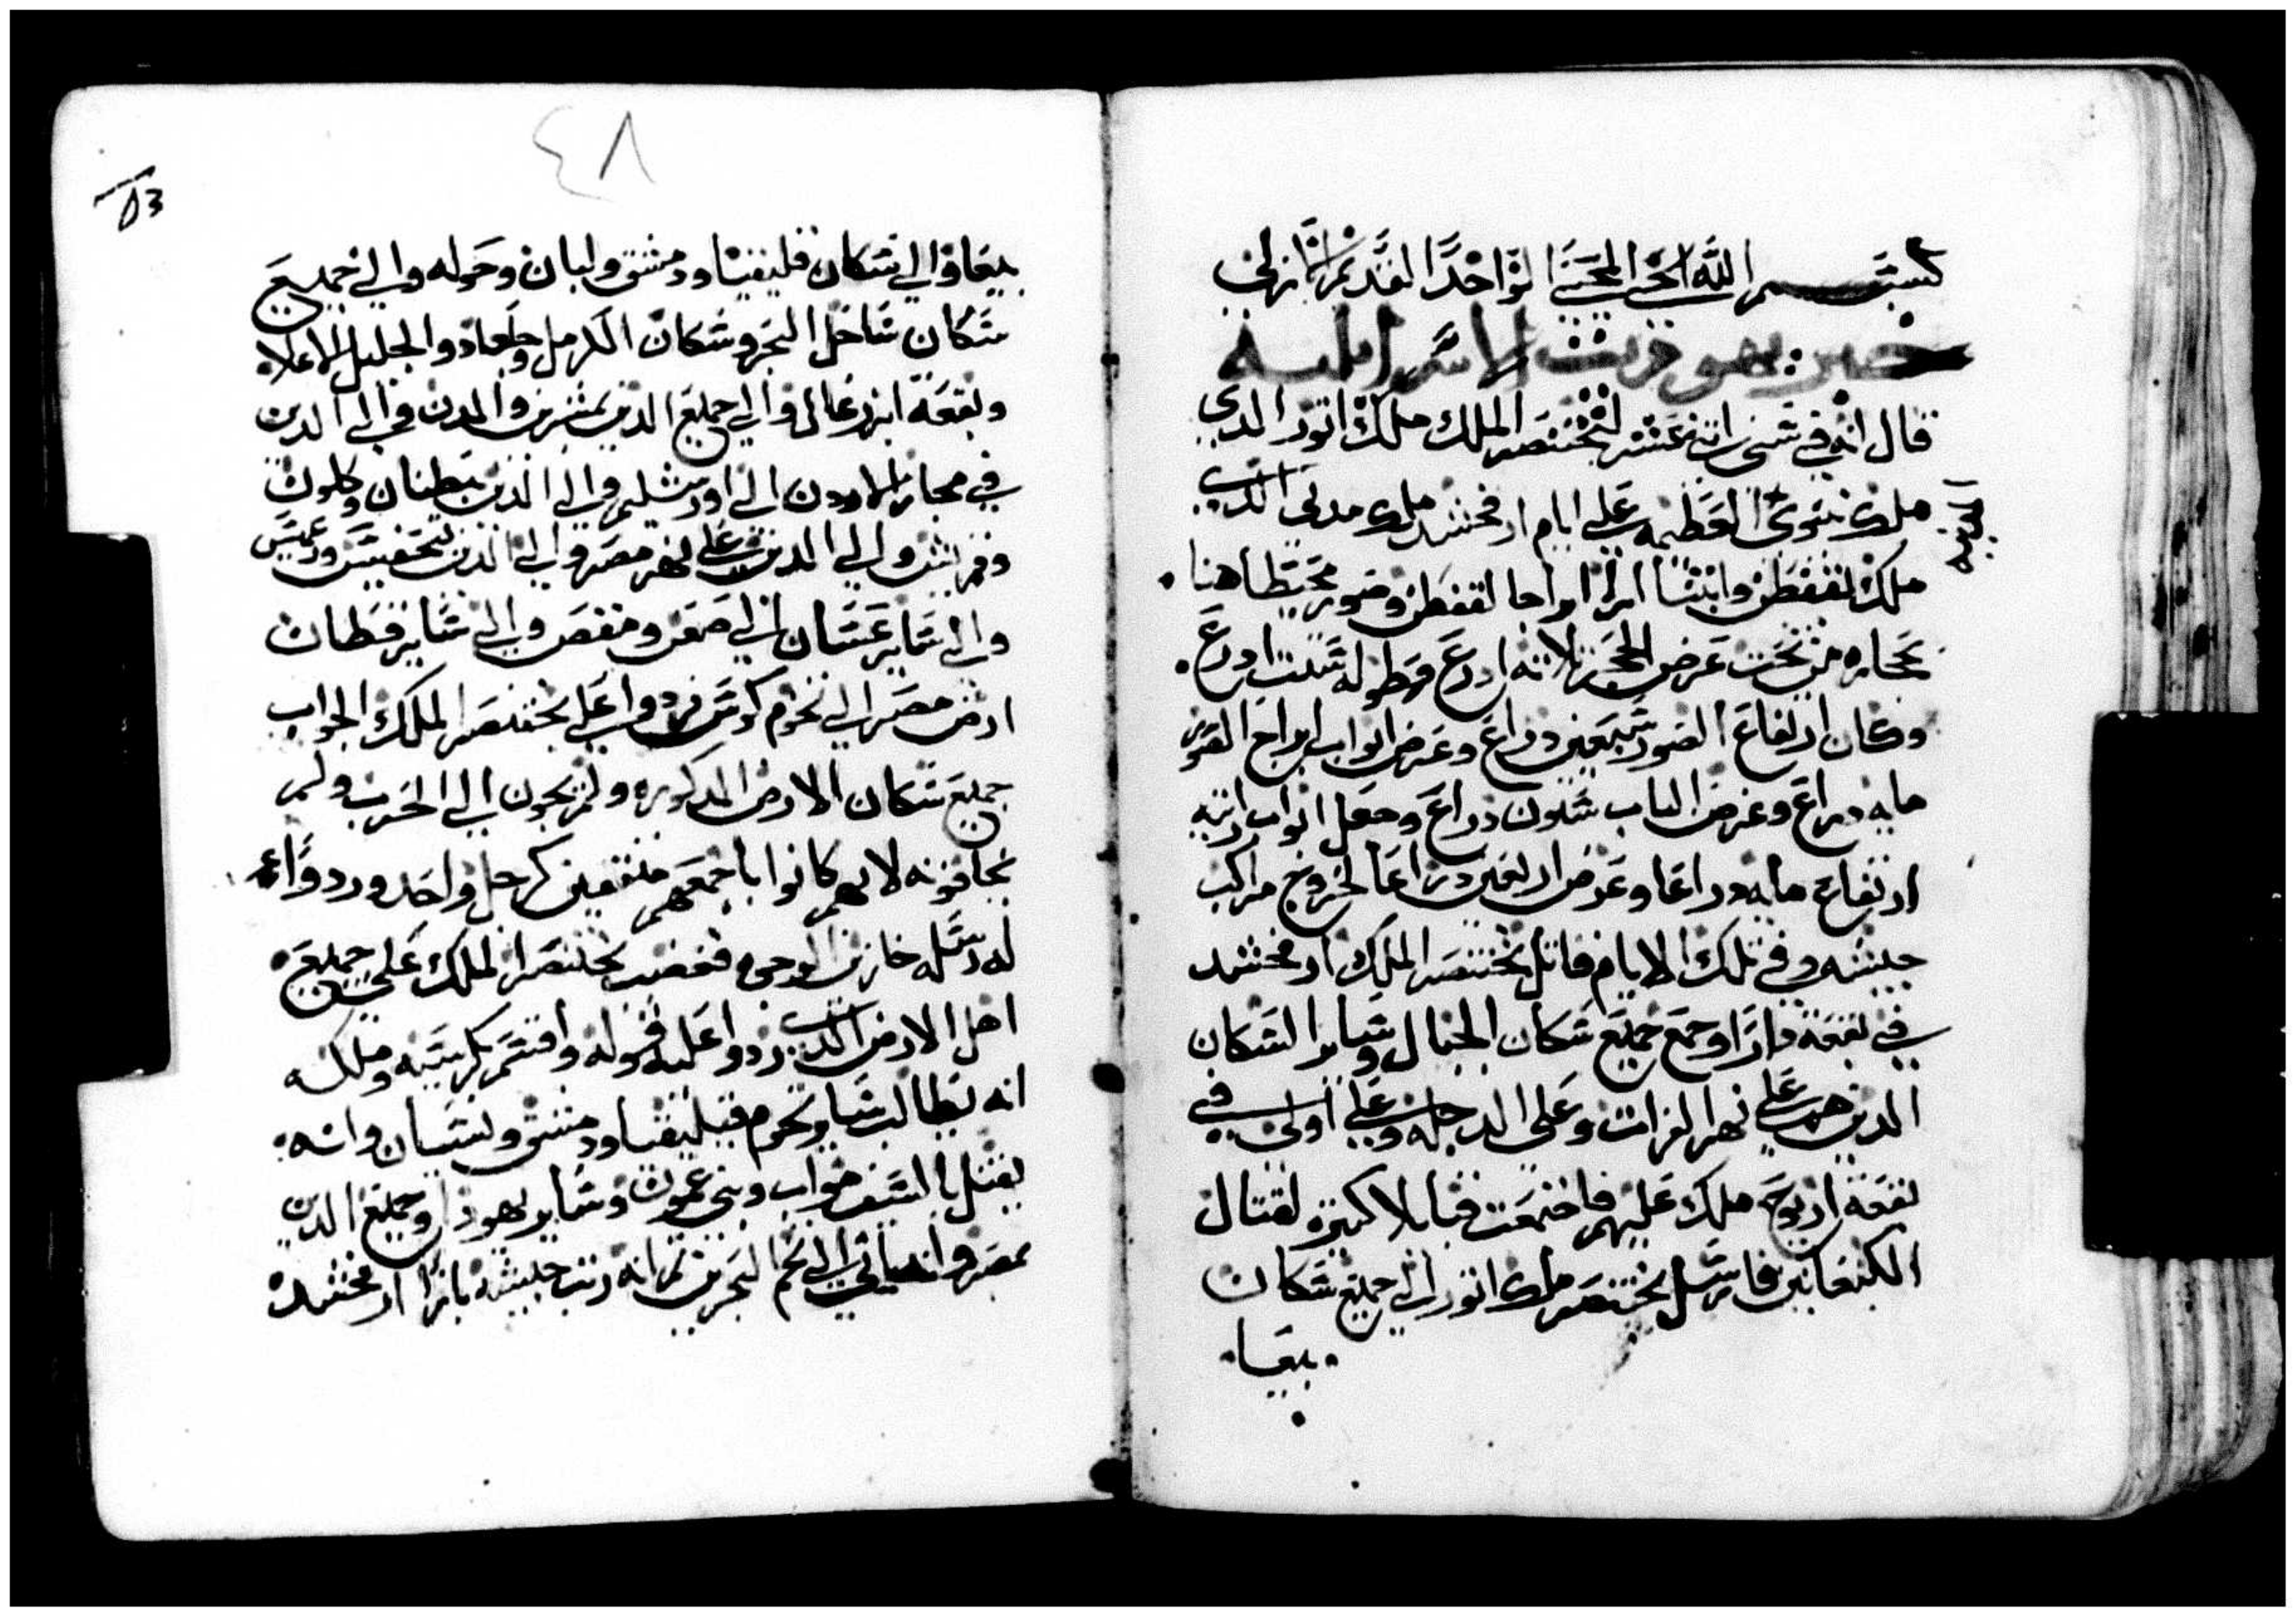 بسم الله الحي المحيي الواحد القديم الازلي
خبر يهوديت الاسرائيليه
قال انه في سني اتنعشر لبختنصر الملك ملك اتور الدي
ملك نينوى المدينه العظيمه على ايام ارفخشد ملك مدي الدي
ملك لقفطن وابتنا ابراجا لقفطن وصور محيطا هنا
بحجاره من نحت عرض الحجر تلاته ادرع وطوله ستت ادرع
وكان ارتفاع الصور سبعين دراع وعرض ابواب ابراج القصور
مايه دراع وعرض الباب ستون دراع وجعل ابواب المدينه
ارتفاع مايه دراعا وعرض اربعين دراعا لخروج مراكب
جيشه وفي تلك الايام قاتل بختنصر الملك ارفخشد
في بقعة داراو جمع جميع سكان الجبال وساير السكان
الدين هم على نهر الفرات وعلى الدجله وعلى اولى في
بقعة اريوح ملك عليهم فاجتمعت قبايلا كتيره لقتال
الكنعانين فارسل بختنصر ملك اتور الي جميع سكان
بيعا
٤٨
بيعا والي سكان قليقيا ودمشق ولبان وحوله والي جميع
سكان ساحل البحر وسكان الكرمل وجلعاد والجليل الاعلا
وبقعة ايزدغال والي جميع الدين بسمرين والمدن والي الدين
في مجاز الاردن الي اورشليم والي الدين بطنان وكلوت
وقريش والي الدين على نهر مصر والي الدين بتحفيس ورعميس
والي ساير عسان الي صعن ومنفص والي ساير قطان
ارض مصر الي تخوم كوش فردوا على بختنصر الملك الجواب
جميع سكان الارض المدكوره ولم يجون الي الحرب ولم
يخافونه لانهم كانوا باجمعهم متفقين كرجل واحد وردوا
له رسله خازيين الوجوه فغضب بختنصر الملك على جميع
اهل الارض الدين ردوا عليه قوله واقسم بكرسيه وملكه
انه يطالب ساير تخوم قيليقيا ودمشق ولسيان وانه
يقتل بالسيف مواب وبني عمون وساير يهودا وجميع الدين
بمصر وانه ياتي الي تخم البحرين تم انه رتب جيشه بازا ارفخشد